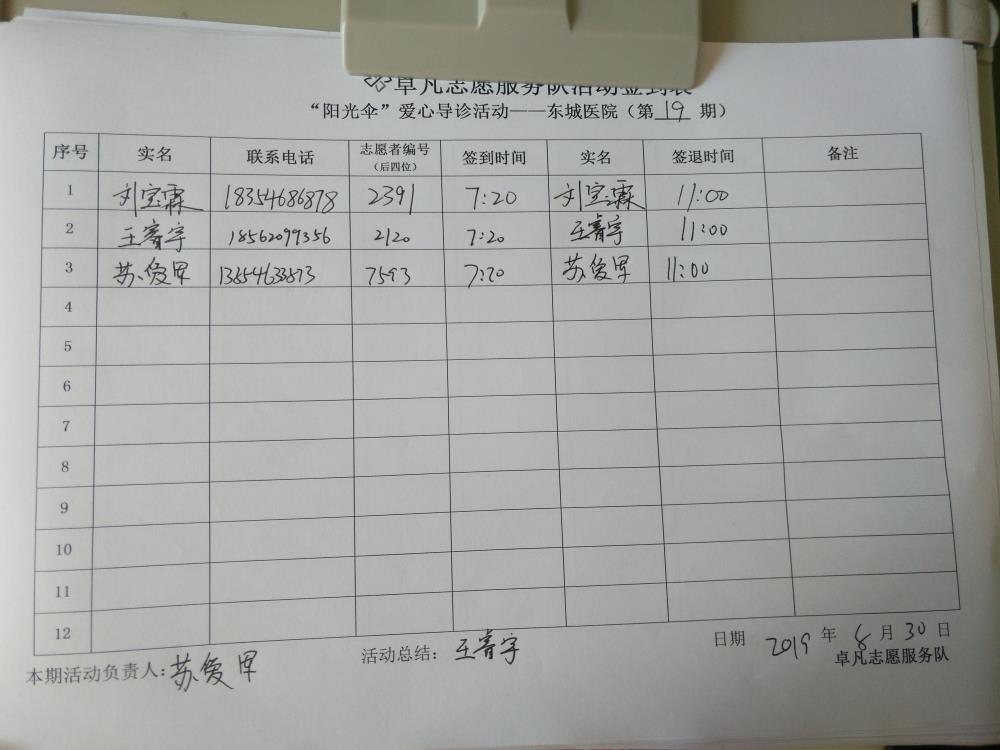 卓凡志愿服务队活动签到表
“阳光伞”爱心导诊活动——东城医院（第 19 期）
序号 实名 联系电话 志愿者编号（后四位） 签到时间 实名 签退时间 备注
1 刘宝霖 18354686878 2391 7:20 刘宝霖 11:00
2 王睿宇 18562099356 2120 7:20 王睿宇 11:00
3 苏俊甲 7593 7:20 苏俊甲 11:00
4
5
6
7
8
9
10
11
12
本期活动负责人：苏俊甲 活动总结：王睿宇 日期 2019 年 8 月 30 日
卓凡志愿服务队